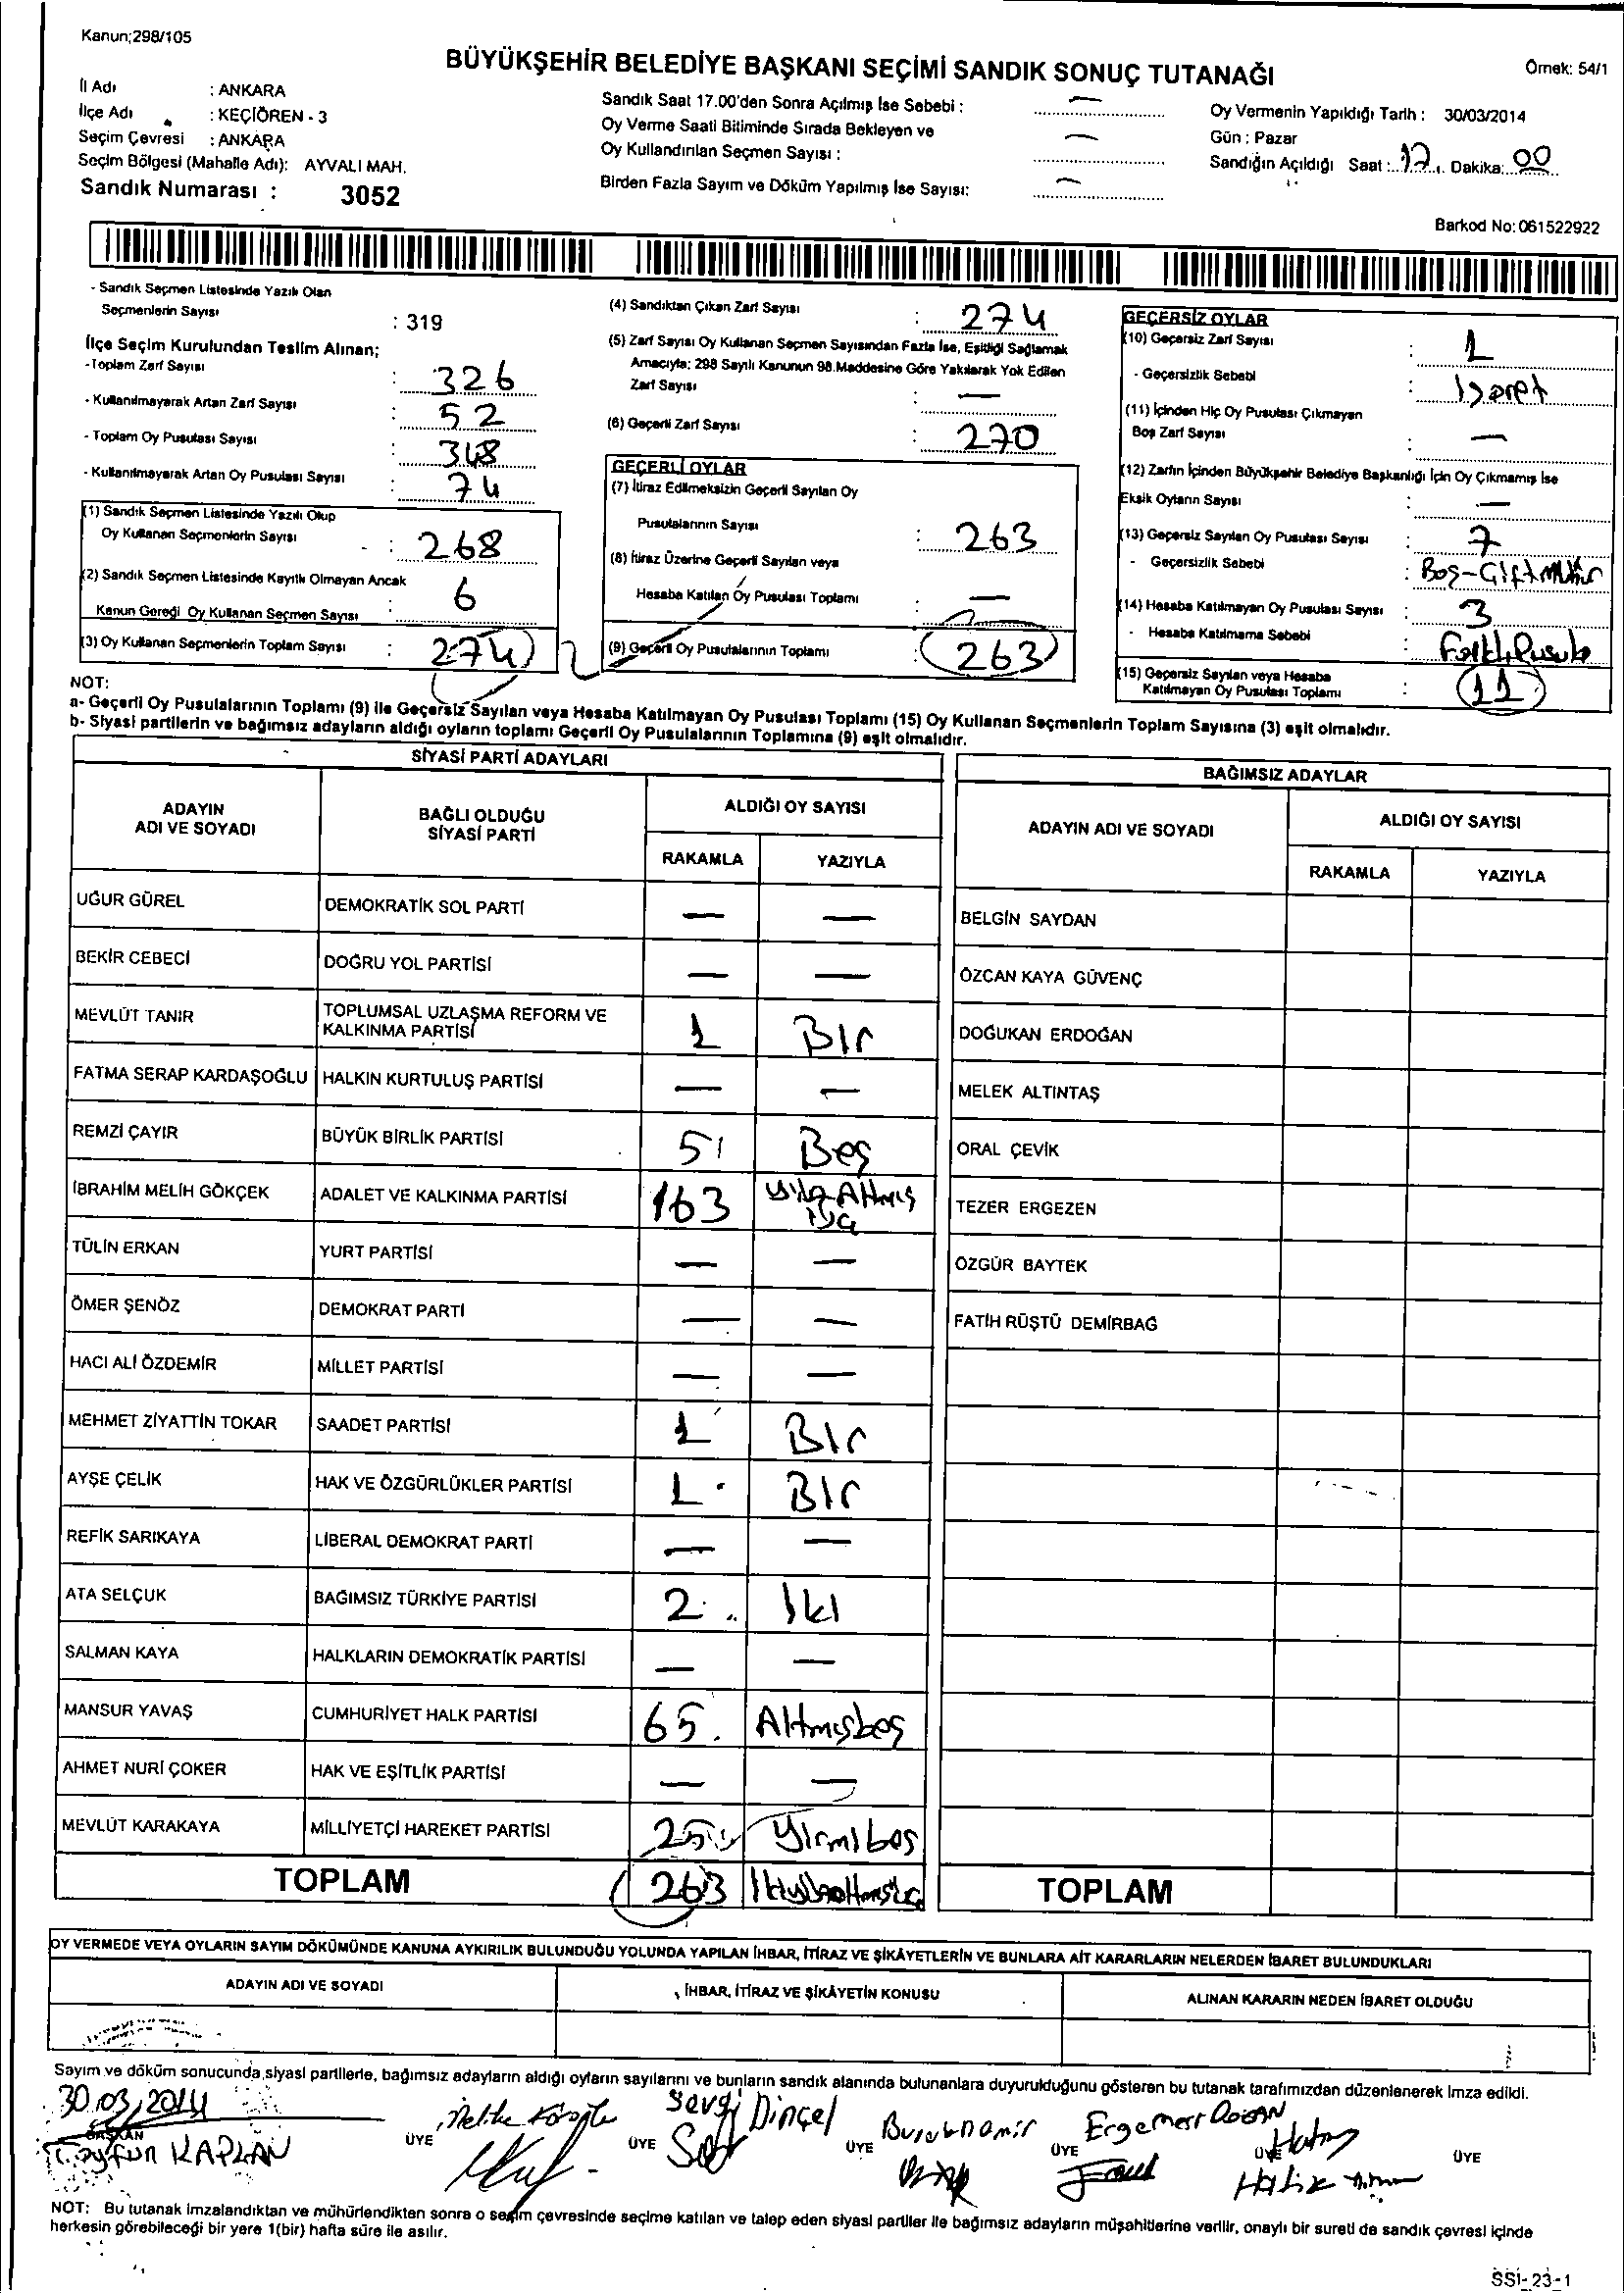 Kanun;298/105
BÜYÜKŞEHİR BELEDİYE BAŞKANI SEÇİMİ SANDIK SONUÇ TUTANAĞI
Örnek: 54/1
İl Adı : ANKARA
İlçe Adı : KEÇİÖREN - 3
Seçim Çevresi : ANKARA
Seçim Bölgesi (Mahalle Adı): AYVALI MAH.
Sandık Numarası : 3052
Sandık Saat 17.00'den Sonra Açılmış İse Sebebi : —
Oy Verme Saati Bitiminde Sırada Bekleyen ve
Oy Kullandırılan Seçmen Sayısı : —
Birden Fazla Sayım ve Döküm Yapılmış İse Sayısı: —
Oy Vermenin Yapıldığı Tarih : 30/03/2014
Gün : Pazar
Sandığın Açıldığı Saat : 17 Dakika: 00
Barkod No: 061522922
- Sandık Seçmen Listesinde Yazılı Olan
Seçmenlerin Sayısı : 319
İlçe Seçim Kurulundan Teslim Alınan;
- Toplam Zarf Sayısı : 326
- Kullanılmayarak Artan Zarf Sayısı : 52
- Toplam Oy Pusulası Sayısı : 348
- Kullanılmayarak Artan Oy Pusulası Sayısı : 74
(1) Sandık Seçmen Listesinde Yazılı Olup
Oy Kullanan Seçmenlerin Sayısı : 268
(2) Sandık Seçmen Listesinde Kayıtlı Olmayan Ancak
Kanun Gereği Oy Kullanan Seçmen Sayısı : 6
(3) Oy Kullanan Seçmenlerin Toplam Sayısı : 274
(4) Sandıktan Çıkan Zarf Sayısı : 274
(5) Zarf Sayısı Oy Kullanan Seçmen Sayısından Fazla İse, Eşitliği Sağlamak
Amacıyla: 298 Sayılı Kanunun 98.Maddesine Göre Yakılarak Yok Edilen
Zarf Sayısı : —
(6) Geçerli Zarf Sayısı : 270
GEÇERLİ OYLAR
(7) İtiraz Edilmeksizin Geçerli Sayılan Oy
Pusulalarının Sayısı : 263
(8) İtiraz Üzerine Geçerli Sayılan veya
Hesaba Katılan Oy Pusulası Toplamı : —
(9) Geçerli Oy Pusulalarının Toplamı : 263
GEÇERSİZ OYLAR
(10) Geçersiz Zarf Sayısı : 1
- Geçersizlik Sebebi : İşaret
(11) İçinden Hiç Oy Pusulası Çıkmayan
Boş Zarf Sayısı : —
(12) Zarfın İçinden Büyükşehir Belediye Başkanlığı İçin Oy Çıkmamış İse
Eksik Oyların Sayısı : —
(13) Geçersiz Sayılan Oy Pusulası Sayısı : 7
- Geçersizlik Sebebi : Boş-Çift mühür
(14) Hesaba Katılmayan Oy Pusulası Sayısı : 3
- Hesaba Katılmama Sebebi : Farklı Pusula
(15) Geçersiz Sayılan veya Hesaba
Katılmayan Oy Pusulası Toplamı : 11
NOT:
a- Geçerli Oy Pusulalarının Toplamı (9) ile Geçersiz Sayılan veya Hesaba Katılmayan Oy Pusulası Toplamı (15) Oy Kullanan Seçmenlerin Toplam Sayısına (3) eşit olmalıdır.
b- Siyasi partilerin ve bağımsız adayların aldığı oyların toplamı Geçerli Oy Pusulalarının Toplamına (9) eşit olmalıdır.
SİYASİ PARTİ ADAYLARI
ADAYIN ADI VE SOYADI
BAĞLI OLDUĞU SİYASİ PARTİ
ALDIĞI OY SAYISI
RAKAMLA YAZIYLA
UĞUR GÜREL DEMOKRATİK SOL PARTİ — —
BEKİR CEBECİ DOĞRU YOL PARTİSİ — —
MEVLÜT TANIR TOPLUMSAL UZLAŞMA REFORM VE KALKINMA PARTİSİ 1 Bir
FATMA SERAP KARDAŞOĞLU HALKIN KURTULUŞ PARTİSİ — —
REMZİ ÇAYIR BÜYÜK BİRLİK PARTİSİ 5 Beş
İBRAHİM MELİH GÖKÇEK ADALET VE KALKINMA PARTİSİ 163 yüz Altmış üç
TÜLİN ERKAN YURT PARTİSİ — —
ÖMER ŞENÖZ DEMOKRAT PARTİ — —
HACI ALİ ÖZDEMİR MİLLET PARTİSİ — —
MEHMET ZİYATTİN TOKAR SAADET PARTİSİ 1 Bir
AYŞE ÇELİK HAK VE ÖZGÜRLÜKLER PARTİSİ 1 Bir
REFİK SARIKAYA LİBERAL DEMOKRAT PARTİ — —
ATA SELÇUK BAĞIMSIZ TÜRKİYE PARTİSİ 2 İki
SALMAN KAYA HALKLARIN DEMOKRATİK PARTİSİ — —
MANSUR YAVAŞ CUMHURİYET HALK PARTİSİ 65 Altmışbeş
AHMET NURİ ÇOKER HAK VE EŞİTLİK PARTİSİ — —
MEVLÜT KARAKAYA MİLLİYETÇİ HAREKET PARTİSİ 25 Yirmibeş
TOPLAM 263 İkiyüzaltmışüç
BAĞIMSIZ ADAYLAR
ADAYIN ADI VE SOYADI
ALDIĞI OY SAYISI
RAKAMLA YAZIYLA
BELGİN SAYDAN
ÖZCAN KAYA GÜVENÇ
DOĞUKAN ERDOĞAN
MELEK ALTINTAŞ
ORAL ÇEVİK
TEZER ERGEZEN
ÖZGÜR BAYTEK
FATİH RÜŞTÜ DEMİRBAĞ
TOPLAM
OY VERMEDE VEYA OYLARIN SAYIM DÖKÜMÜNDE KANUNA AYKIRILIK BULUNDUĞU YOLUNDA YAPILAN İHBAR, İTİRAZ VE ŞİKAYETLERİN VE BUNLARA AİT KARARLARIN NELERDEN İBARET BULUNDUKLARI
ADAYIN ADI VE SOYADI
İHBAR, İTİRAZ VE ŞİKAYETİN KONUSU
ALINAN KARARIN NEDEN İBARET OLDUĞU
Sayım ve döküm sonucunda siyasi partilerle, bağımsız adayların aldığı oyların sayılarını ve bunların sandık alanında bulunanlara duyurulduğunu gösteren bu tutanak tarafımızdan düzenlenerek imza edildi.
30.03.2014
BAŞKAN
Tayfun KAPLAN
ÜYE
ÜYE Sevgi Dinçel
ÜYE
ÜYE DOĞAN
ÜYE
ÜYE
NOT: Bu tutanak imzalandıktan ve mühürlendikten sonra o seçim çevresinde seçime katılan ve talep eden siyasi partiler ile bağımsız adayların müşahitlerine verilir, onaylı bir sureti de sandık çevresi içinde
herkesin görebileceği bir yere 1(bir) hafta süre ile asılır.
SSİ-23-1